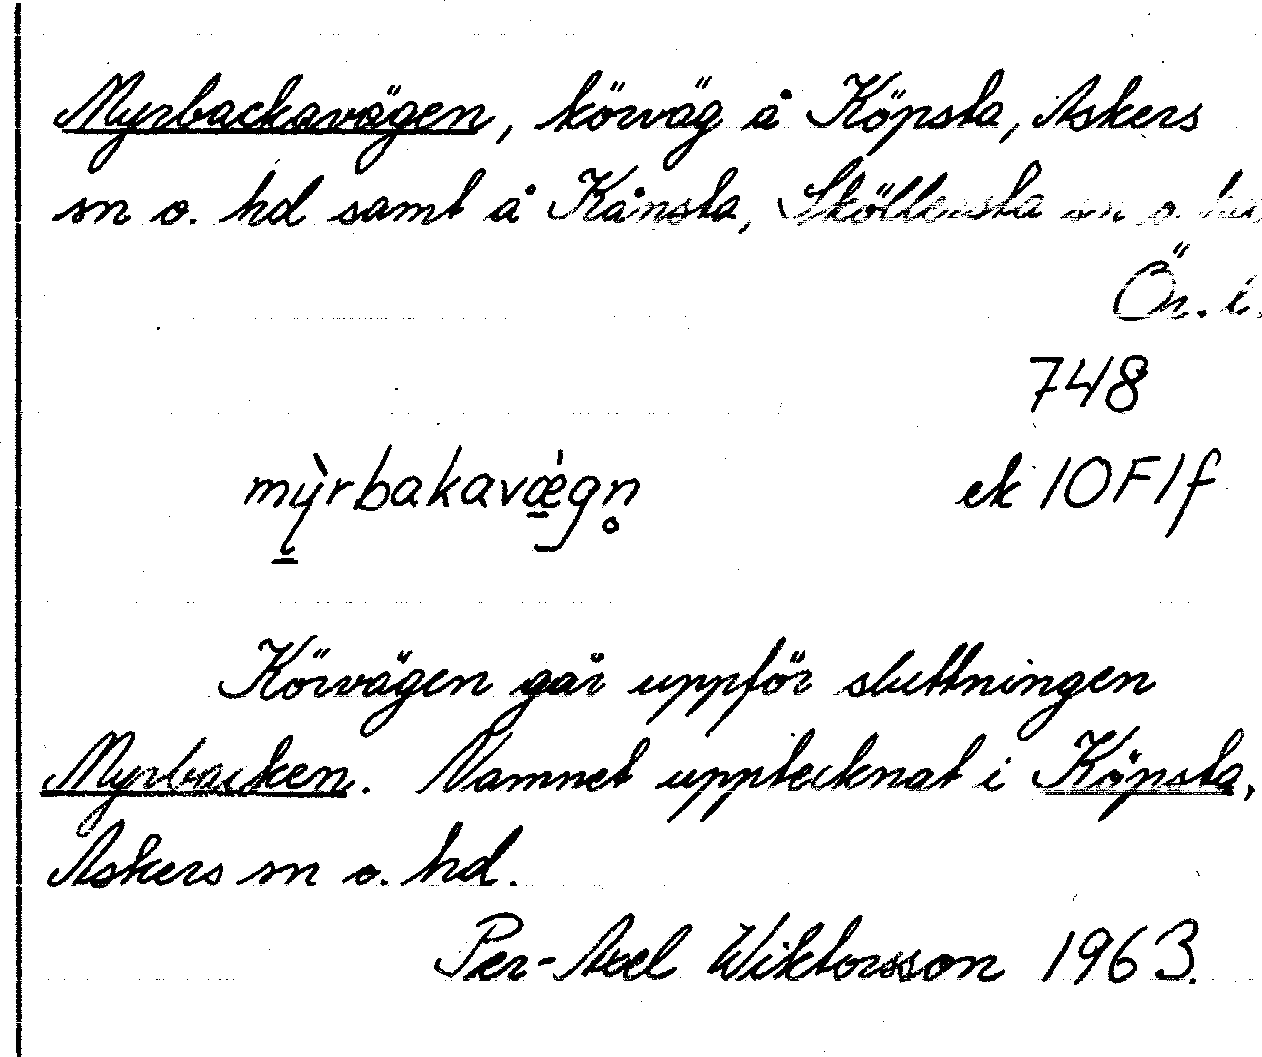 Myrbackavägen, körväg å Köpsta, Askers
sn o. hd samt å Kånsta, Sköllersta sn o. hd
Ör. l.
748
mỳrbakavǽgn̥
ek 10F1f
Körvägen går uppför sluttningen
Myrbacken. Namnet upptecknat i Köpsta,
Askers sn o. hd.
Per-Axel Wiktorsson 1963.